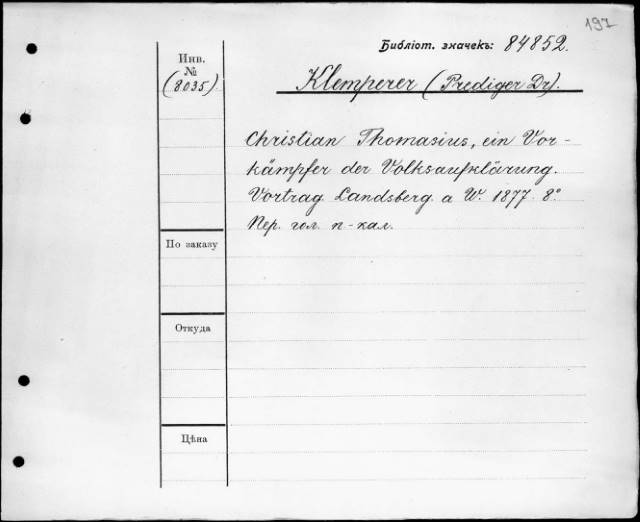 197
Библіот. значекъ: 84852.
Инв.
№
(8035).
Klemperer (Prediger Dr).
Christian Thomasius, ein Vor-
kämpfer der Volksaufklärung.
Vortrag Landsberg. a W. 1877. 8º
Пер. гол. п-кал.
По заказу
Откуда
Цѣна